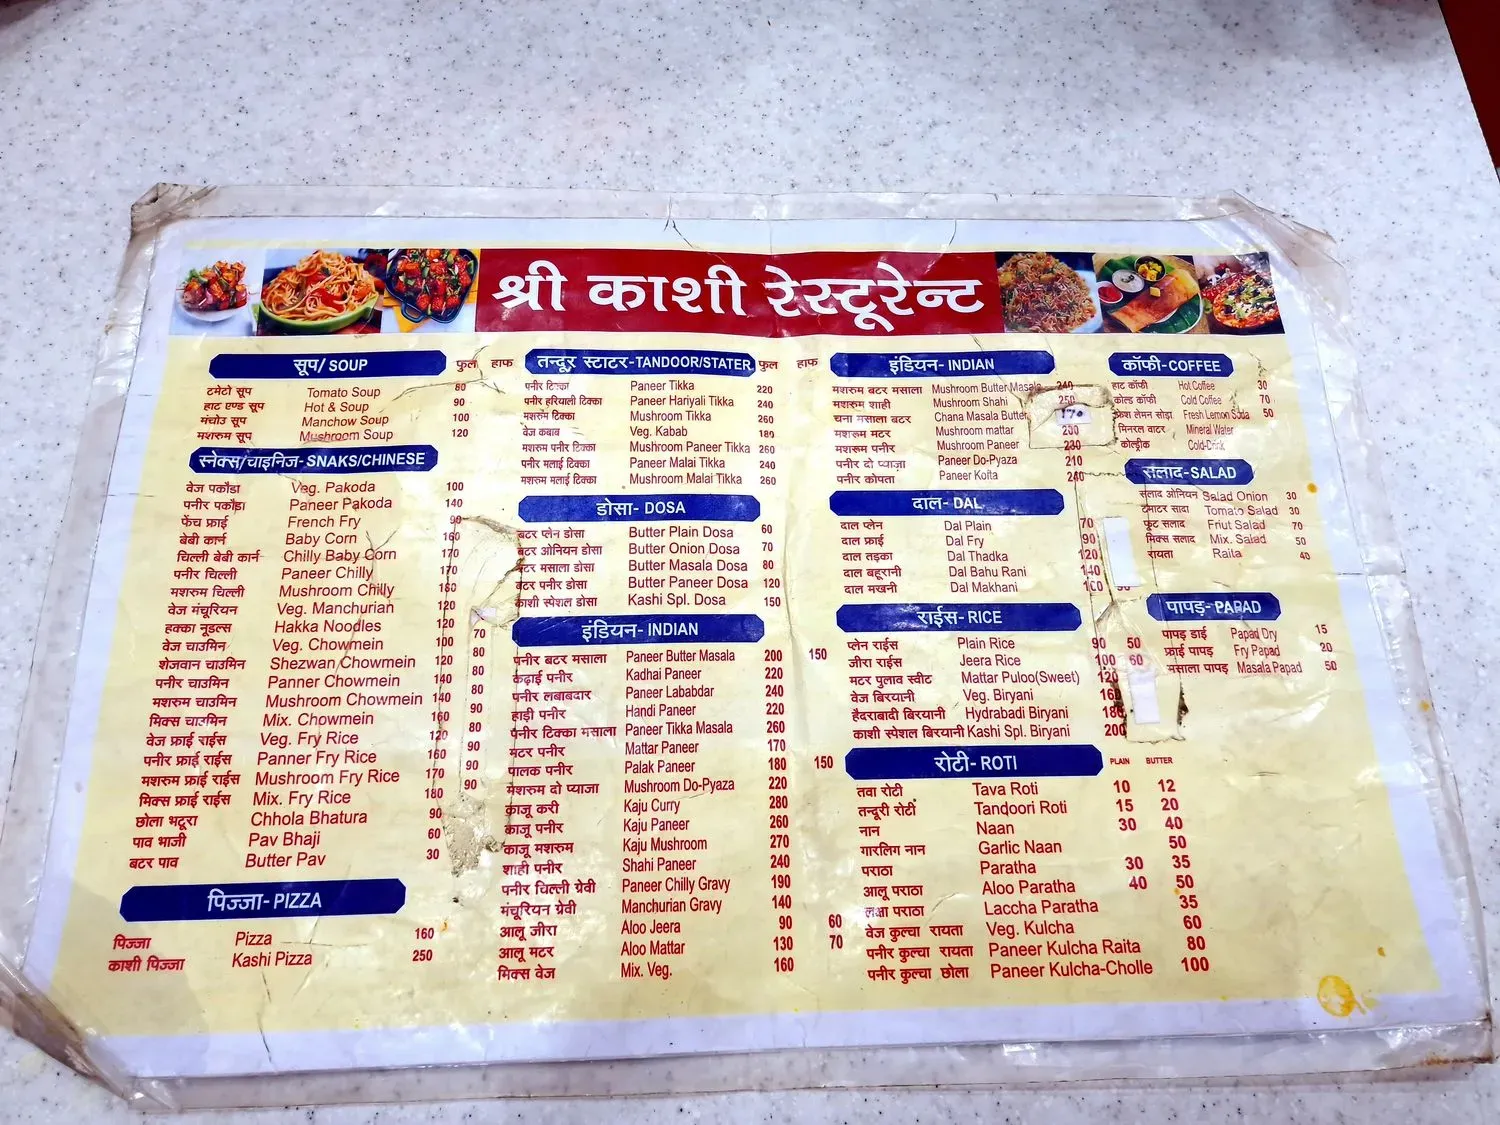 श्री काशी रेस्टूरेन्ट
सूप/ SOUP फुल हाफ
टमेटो सूप Tomato Soup 80
हाट एण्ड सूप Hot & Soup 90
मंचोउ सूप Manchow Soup 100
मशरुम सूप Mushroom Soup 120
स्नेक्स/चाइनिज- SNAKS/CHINESE
वेज पकौडा Veg. Pakoda 100
पनीर पकौड़ा Paneer Pakoda 140
फेंच फ्राई French Fry 90
बेबी कार्न Baby Corn 160
चिल्ली बेबी कार्न Chilly Baby Corn 170
पनीर चिल्ली Paneer Chilly 170
मशरुम चिल्ली Mushroom Chilly 180
वेज मंचूरियन Veg. Manchurian 120
हक्का नूडल्स Hakka Noodles 120 70
वेज चाउमिन Veg. Chowmein 100 80
शेजवान चाउमिन Shezwan Chowmein 120 80
पनीर चाउमिन Panner Chowmein 140 80
मशरुम चाउमिन Mushroom Chowmein 140 90
मिक्स चाउमिन Mix. Chowmein 160 80
वेज फ्राई राईस Veg. Fry Rice 120 90
पनीर फ्राई राईस Panner Fry Rice 160 90
मशरुम फ्राई राईस Mushroom Fry Rice 170 90
मिक्स फ्राई राईस Mix. Fry Rice 180
छोला भटूरा Chhola Bhatura 90
पाव भाजी Pav Bhaji 60
बटर पाव Butter Pav 30
पिज्जा- PIZZA
पिज्जा Pizza 160
काशी पिज्जा Kashi Pizza 250
तन्दूर स्टाटर-TANDOOR/STATER फुल हाफ
पनीर टिक्का Paneer Tikka 220
पनीर हरियाली टिक्का Paneer Hariyali Tikka 240
मशरुम टिक्का Mushroom Tikka 260
वेज कबाब Veg. Kabab 180
मशरुम पनीर टिक्का Mushroom Paneer Tikka 260
पनीर मलाई टिक्का Paneer Malai Tikka 240
मशरुम मलाई टिक्का Mushroom Malai Tikka 260
डोसा- DOSA
बटर प्लेन डोसा Butter Plain Dosa 60
बटर ओनियन डोसा Butter Onion Dosa 70
बटर मसाला डोसा Butter Masala Dosa 80
बटर पनीर डोसा Butter Paneer Dosa 120
काशी स्पेशल डोसा Kashi Spl. Dosa 150
इंडियन- INDIAN
पनीर बटर मसाला Paneer Butter Masala 200 150
कढ़ाई पनीर Kadhai Paneer 220
पनीर लबाबदार Paneer Lababdar 240
हाड़ी पनीर Handi Paneer 220
पनीर टिक्का मसाला Paneer Tikka Masala 260
मटर पनीर Mattar Paneer 170
पालक पनीर Palak Paneer 180 150
मशरुम दो प्याजा Mushroom Do-Pyaza 220
काजू करी Kaju Curry 280
काजू पनीर Kaju Paneer 260
काजू मशरुम Kaju Mushroom 270
शाही पनीर Shahi Paneer 240
पनीर चिल्ली ग्रेवी Paneer Chilly Gravy 190
मंचूरियन ग्रेवी Manchurian Gravy 140
आलू जीरा Aloo Jeera 90 60
आलू मटर Aloo Mattar 130 70
मिक्स वेज Mix. Veg. 160
इंडियन- INDIAN
मशरुम बटर मसाला Mushroom Butter Masala 240
मशरुम शाही Mushroom Shahi 250
चना मसाला बटर Chana Masala Butter 170
मशरूम मटर Mushroom mattar 200
मशरूम पनीर Mushroom Paneer 230
पनीर दो प्याज़ा Paneer Do-Pyaza 210
पनीर कोपता Paneer Kofta 240
दाल- DAL
दाल प्लेन Dal Plain 70
दाल फ्राई Dal Fry 90
दाल तड़का Dal Thadka 120
दाल बहूरानी Dal Bahu Rani 140
दाल मखनी Dal Makhani
राईस- RICE
प्लेन राईस Plain Rice 90 50
जीरा राईस Jeera Rice 100 60
मटर पुलाव स्वीट Mattar Puloo(Sweet) 120
वेज बिरयानी Veg. Biryani 160
हैदराबादी बिरयानी Hydrabadi Biryani 180
काशी स्पेशल बिरयानी Kashi Spl. Biryani 200
रोटी- ROTI PLAIN BUTTER
तवा रोटी Tava Roti 10 12
तन्दूरी रोटी Tandoori Roti 15 20
नान Naan 30 40
गारलिग नान Garlic Naan 50
पराठा Paratha 30 35
आलू पराठा Aloo Paratha 40 50
लक्षा पराठा Laccha Paratha 35
वेज कुल्चा रायता Veg. Kulcha 60
पनीर कुल्चा रायता Paneer Kulcha Raita 80
पनीर कुल्चा छोला Paneer Kulcha-Cholle 100
कॉफी-COFFEE
हाट कॉफी Hot Coffee 30
कोल्ड कॉफी Cold Coffee 70
फ्रेश लेमन सोड़ा Fresh Lemon Soda 50
मिनरल वाटर Mineral Water
कोल्ड्रीक Cold-Drink
सलाद-SALAD
सलाद ओनियन Salad Onion 30
टमाटर सादा Tomato Salad 30
फ्रूट सलाद Friut Salad 70
मिक्स सलाद Mix. Salad 50
रायता Raita 40
पापड़- PAPAD
पापड़ ड्राई Papad Dry 15
फ्राई पापड़ Fry Papad 20
मसाला पापड़ Masala Papad 50